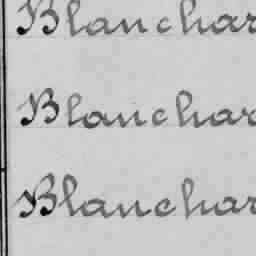 Blanchar
Blanchar
Blanchar